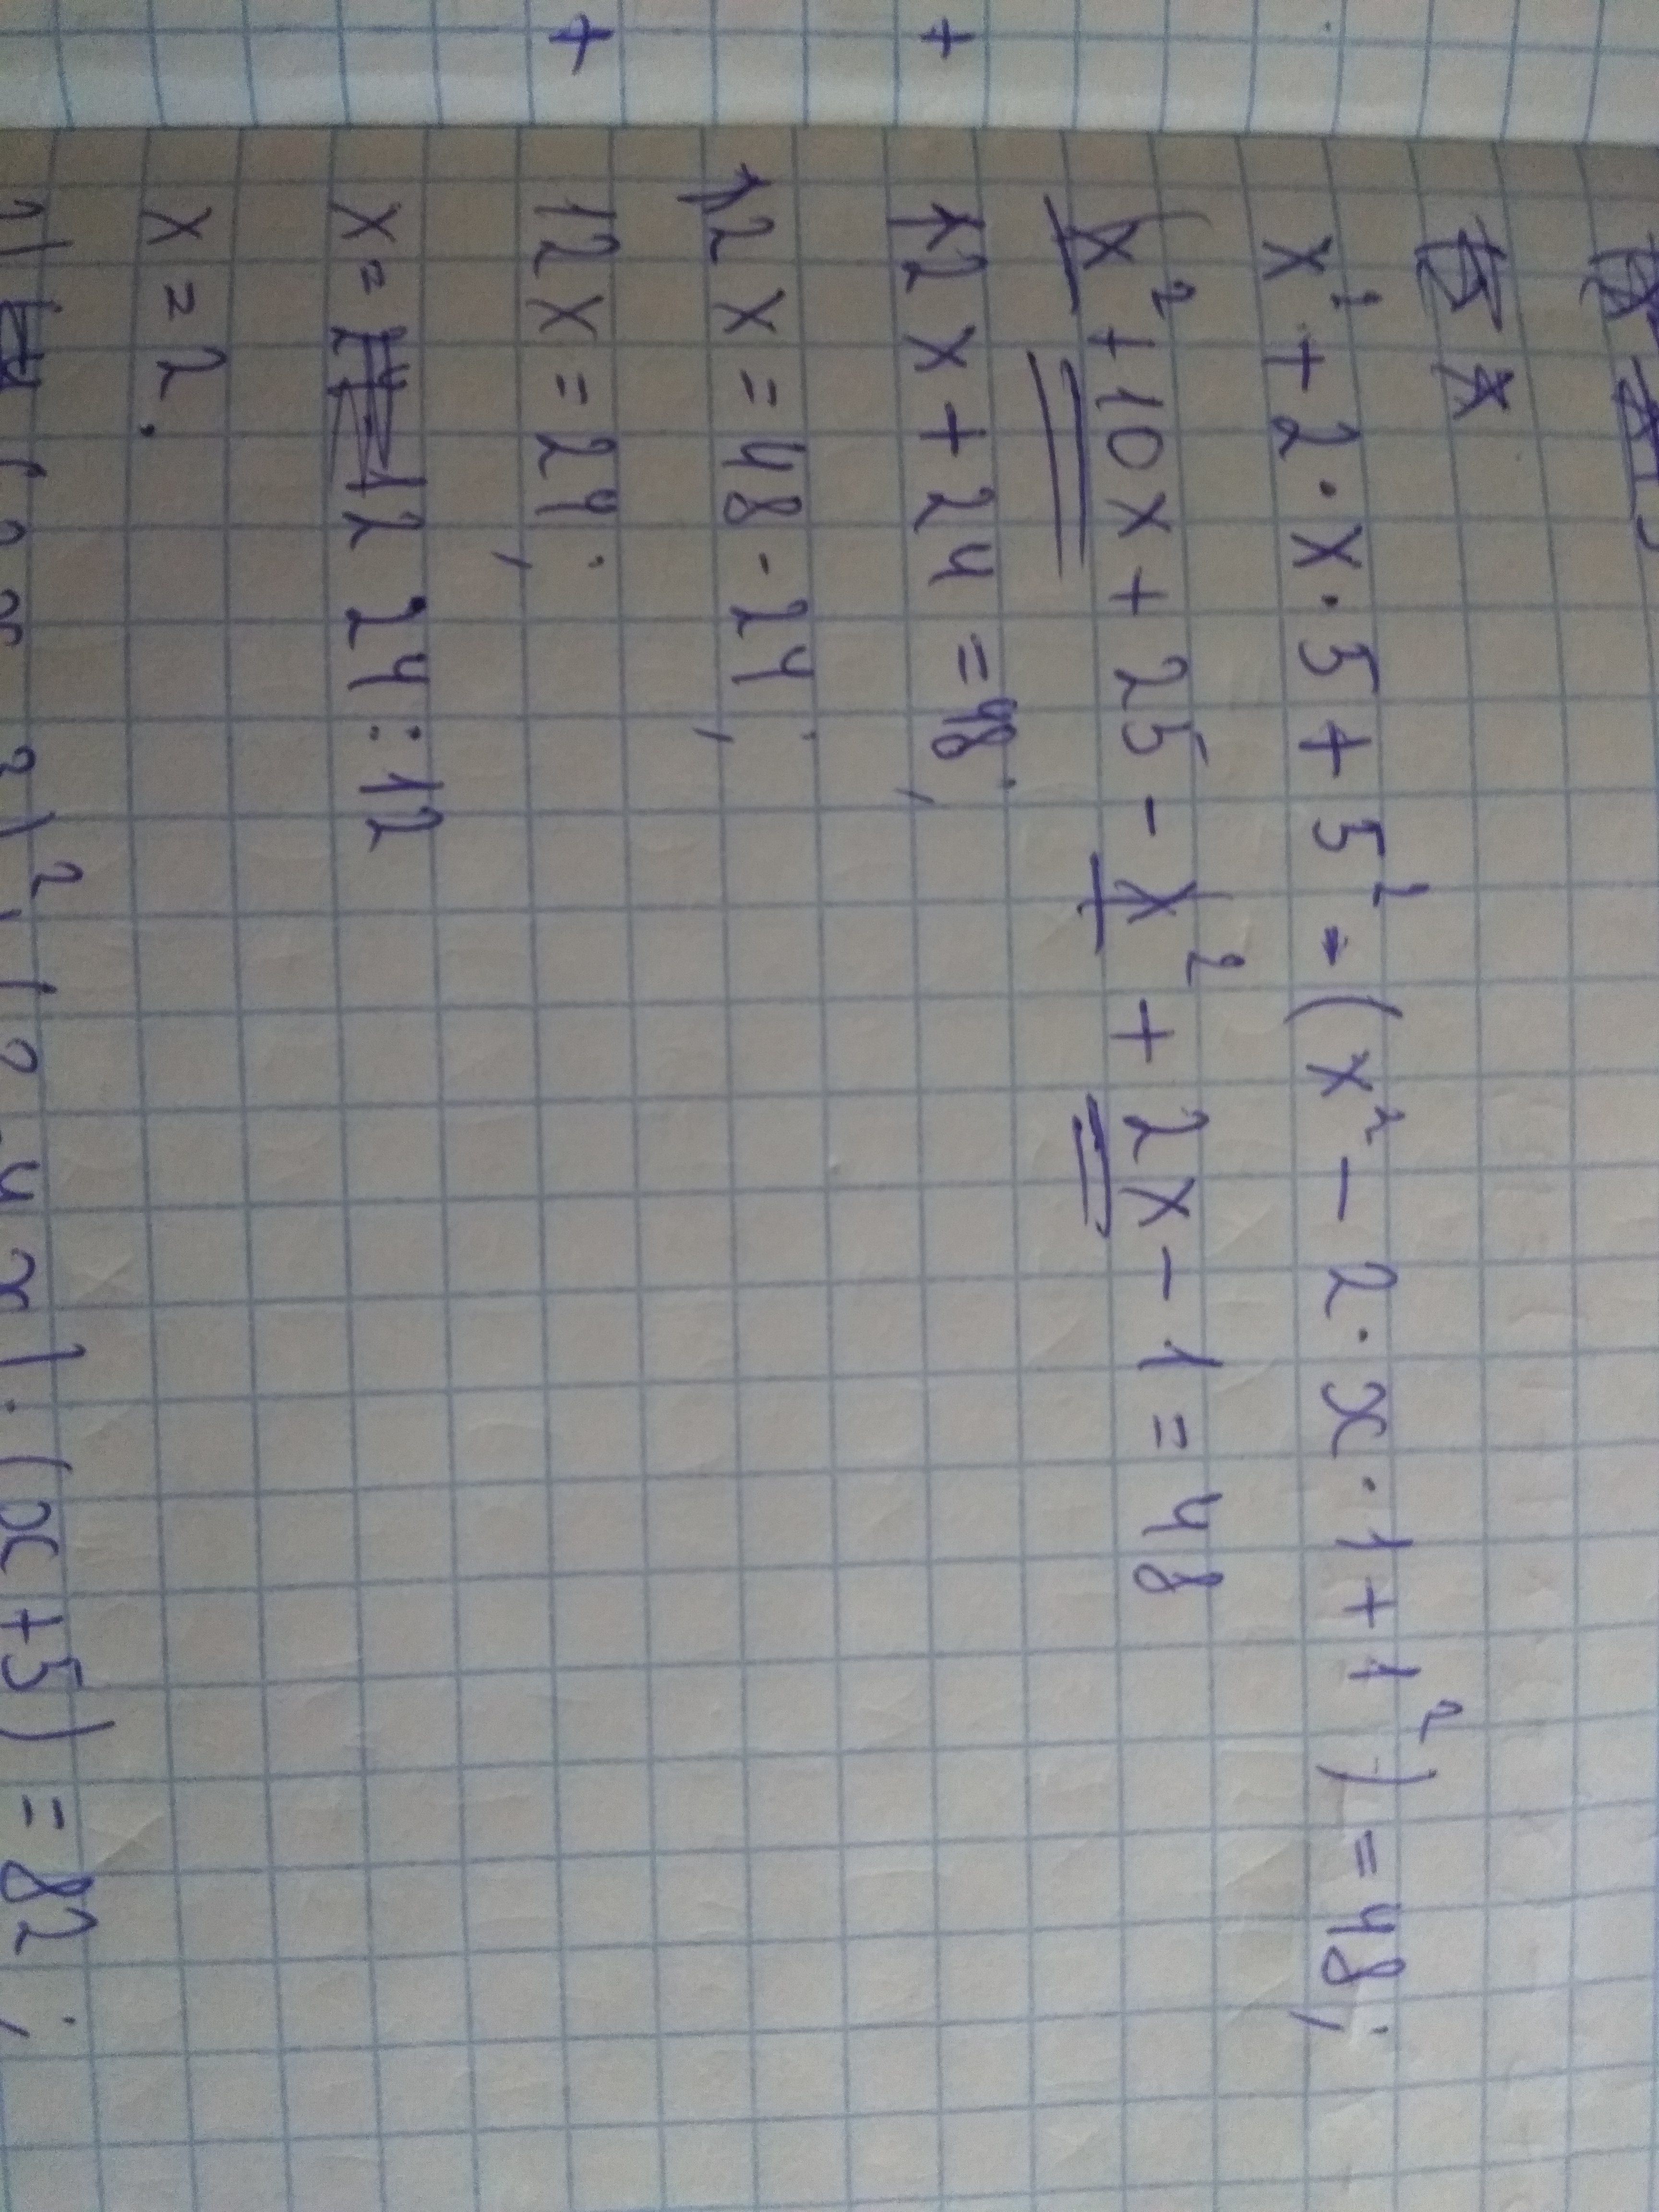 x² + 2 · x · 5 + 5² - (x² - 2 · x · 1 + 1²) = 48;
x² + 10x + 25 - x² + 2x - 1 = 48
12x + 24 = 48;
12x = 48 - 24;
12x = 24;
x = 24 : 12
x = 2.
· (x + 5) = 82;